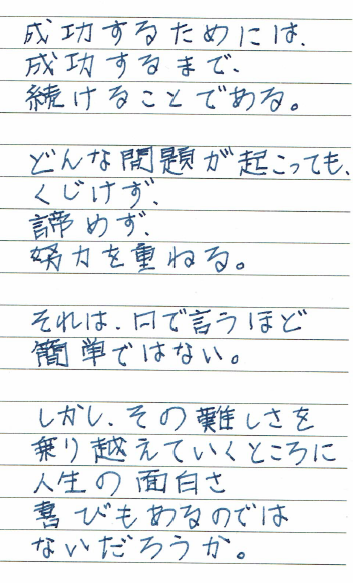 成功するためには、
成功するまで、
続けることである。
どんな問題が起こっても、
くじけず、
諦めず、
努力を重ねる。
それは、口で言うほど
簡単ではない。
しかし、その難しさを
乗り越えていくところに
人生の面白さ
喜びもあるのでは
ないだろうか。